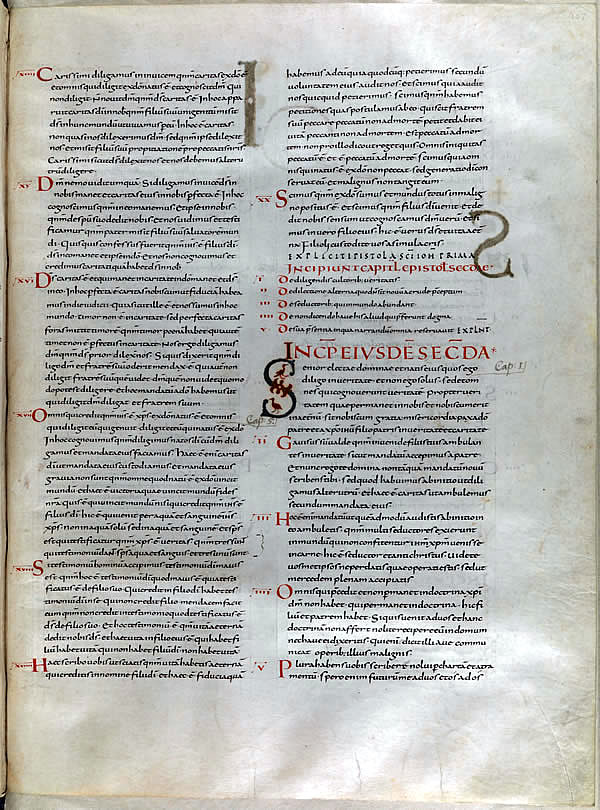 XIIII Carissimi diligamus inuicem qm̄ caritas ex dō ē
et omnis qui diligit ex dō natus ē et cognoscit dm̄ Qui
non diligit Non nouit dm̄ qm̄ ds̄ caritas ē In hoc appa
ruit caritas dī in nobis qm̄ filiū suū unigenitū misit
ds̄ in hunc mundū ut uiuamus per eū In hoc ē caritas
non quasi nos dilexerimus dm̄ sed qm̄ ipse dilexit
nos et misit filiū suū propitiationē pro peccatis nr̄is
Carissimi si ds̄ dilexit nos et nos debemus alteru
trū diligere
XV Dm̄ nemo uidit umquā Si diligamus inuicē ds̄ in
nobis manet et caritas eius in nobis perfecta ē In hoc
cognoscimus qm̄ in eo manemus et ipse in nobis
qm̄ de spū suo dedit nobis et nos uidimus et testi
ficamur qm̄ pater misit filiū suū saluatorē mun
di Quisquis confessus fuerit qm̄ ih̄s ē filius dī
ds̄ in eo manet et ipse in dō Et nos cognouimus et
credimus caritati quā habet ds̄ in nob
XVI Ds̄ caritas ē et qui manet in caritate in dō manet et ds̄
in eo In hoc perfecta ē caritas nobiscū ut fiduciā habea
mus in die iudicii Quia sicut ille ē et nos sumus in hoc
mundo Timor non ē in caritate sed perfecta caritas
foras mittit timorē qm̄ timor poenā habet qui autē
timet non ē perfectus in caritate Nos ergo diligamus
dm̄ qm̄ ds̄ prior dilexit nos Si quis dixerit qm̄ di
ligo dm̄ et fratrē suū oderit mendax ē Qui enī non
diligit fratrē suū quē uidet dm̄ quē non uidet quomo
do potest diligere Et hoc mandatū a dō habemus ut
qui diligit dm̄ diligat et fratrem suum
XVII Omnis qui credit qm̄ ih̄s ē xp̄s ex dō natus ē et omnis
qui diligit eū qui genuit diligit eū qui natus ē ex dō
In hoc cognouimus qm̄ diligimus natos dī cū dm̄ dili
gamus et mandata eius faciamus Haec ē enī caritas
dī ut mandata eius custodiamus et mandata eius
grauia non sunt qm̄ omne quod natū ē ex dō uincit
mundū et haec ē uictoria quae uincit mundū fides
nr̄a quis ē qui uincit mundū nisi qui credit qm̄ ih̄s ē
filius dī hic ē qui uenit per aquā et sanguinē ih̄s
xp̄s non in aqua solū sed in aqua et sanguine et sp̄s
est qui testificatur qm̄ xp̄s ē ueritas qm̄ tres sunt
qui testimoniū dant sp̄s aqua et sanguis et tres unū sunt
XVIII Si testimoniū hominū accipimus testimoniū dī maius
est qm̄ hoc ē testimoniū dī quod maius ē quia testi
ficatus ē de filio suo Qui credit in filiū dī habet tes
timoniū dī in se Qui non credit filio mendacem facit
eum qm̄ non credidit in testimonio quod testificatus ē
ds̄ de filio suo Et hoc ē testimoniū qm̄ uitā aeternā
dedit nobis ds̄ et haec uita in filio eius ē qui habet fi
liū habet uitā qui non habet filiū dī non habet uitā
XVIIII Haec scribo uobis ut sciatis qm̄ uitā habetis aeternā
qui creditis in nomine filii dī et haec ē fiducia quā
habemus ad eū quia quodcūq; petierimus secundū
uoluntatem eius audit nos et scimus quia audit
nos quicquid petierimus scimus qm̄ habemus
petitiones quas postulamus ab eo Qui scit fratrem
suū peccare peccatū non ad mortē petit et dabit ei
uitā peccanti non ad mortem est peccatū ad mor
tem non pro illo dico ut roget quis Omnis iniquitas
peccatū ē et ē peccatū ad mortē scimus quia om
nis qui natus ē ex dō non peccat sed generatio dī con
seruat eū et malignus non tangit eum
XX Scimus qm̄ ex dō sumus et mundus totus in malig
no positus ē et scimus qm̄ filius dī uenit et de
dit nobis sensum ut cognoscamus dm̄ uerū et si
mus in uero filio eius hic ē uerus ds̄ et uita aet
nā Filioli custodite uos a simulacris
EXPLICIT EPISTOLA SCI IOH PRIMA
INCIPIUNT CAPITL EPISTOL SECDAE
I De diligendis cultorib; ueritatis
II De dilectione alterna quod sit non noua eru de praeceptum
III De seductorib; qui in mundo abundant
IIII De non dicendo haue his qui aliud quā se fert dogma
V De sua praesentia in qua narranda omnia reseruauit EXPLNT
INCP EIUS DE SECDA
Cap. 1
I Senior electae dominae et natis eius quos ego
diligo in ueritate et non ego solus sed et om
nes qui cognouerunt ueritatē Propter ueri
tatem quae permanet in nobis et nobiscū erit
in aeternū sit nobiscum gratia misericordia pax a dō
patre et a xp̄o ih̄u filio patris in ueritate et caritate
Cap. 5
II Gauisus sū ualde qm̄ inueni de filiis tuis ambulan
tes in ueritate sicut mandatū accepimus a patre
Et nunc rogo te domina non tāquā mandatū nouū
scribens tibi sed quod habuimus ab initio ut dili
gamus alterutrū et haec ē caritas ut ambulemus
secundum mandata eius
III Hoc ē enī mandatū ut quē ad modū audistis ab initio in
eo ambuletis qm̄ multi seductores exierunt
in mundū qui non confitentur ih̄m xp̄m uenisse
in carne hic ē seductor et antichristus Uidete
uosmet ipsos ne perdatis quae operati estis sed ut
mercedem plenam accipiatis
IIII Omnis qui recedit et non p̄manet in doctrina xp̄i
dm̄ non habet qui permanet in doctrina hic fi
liū et patrem habet Si quis uenit ad uos et hanc
doctrinā non affert nolite recipere eū in domum
nec haue ei dixeritis Qui enī dicit illi aue commu
nicat operib; illius malignis
V Plura habens uobis scribere nolui per chartā et atra
mentū spero enim futurū me ad uos et os ad os